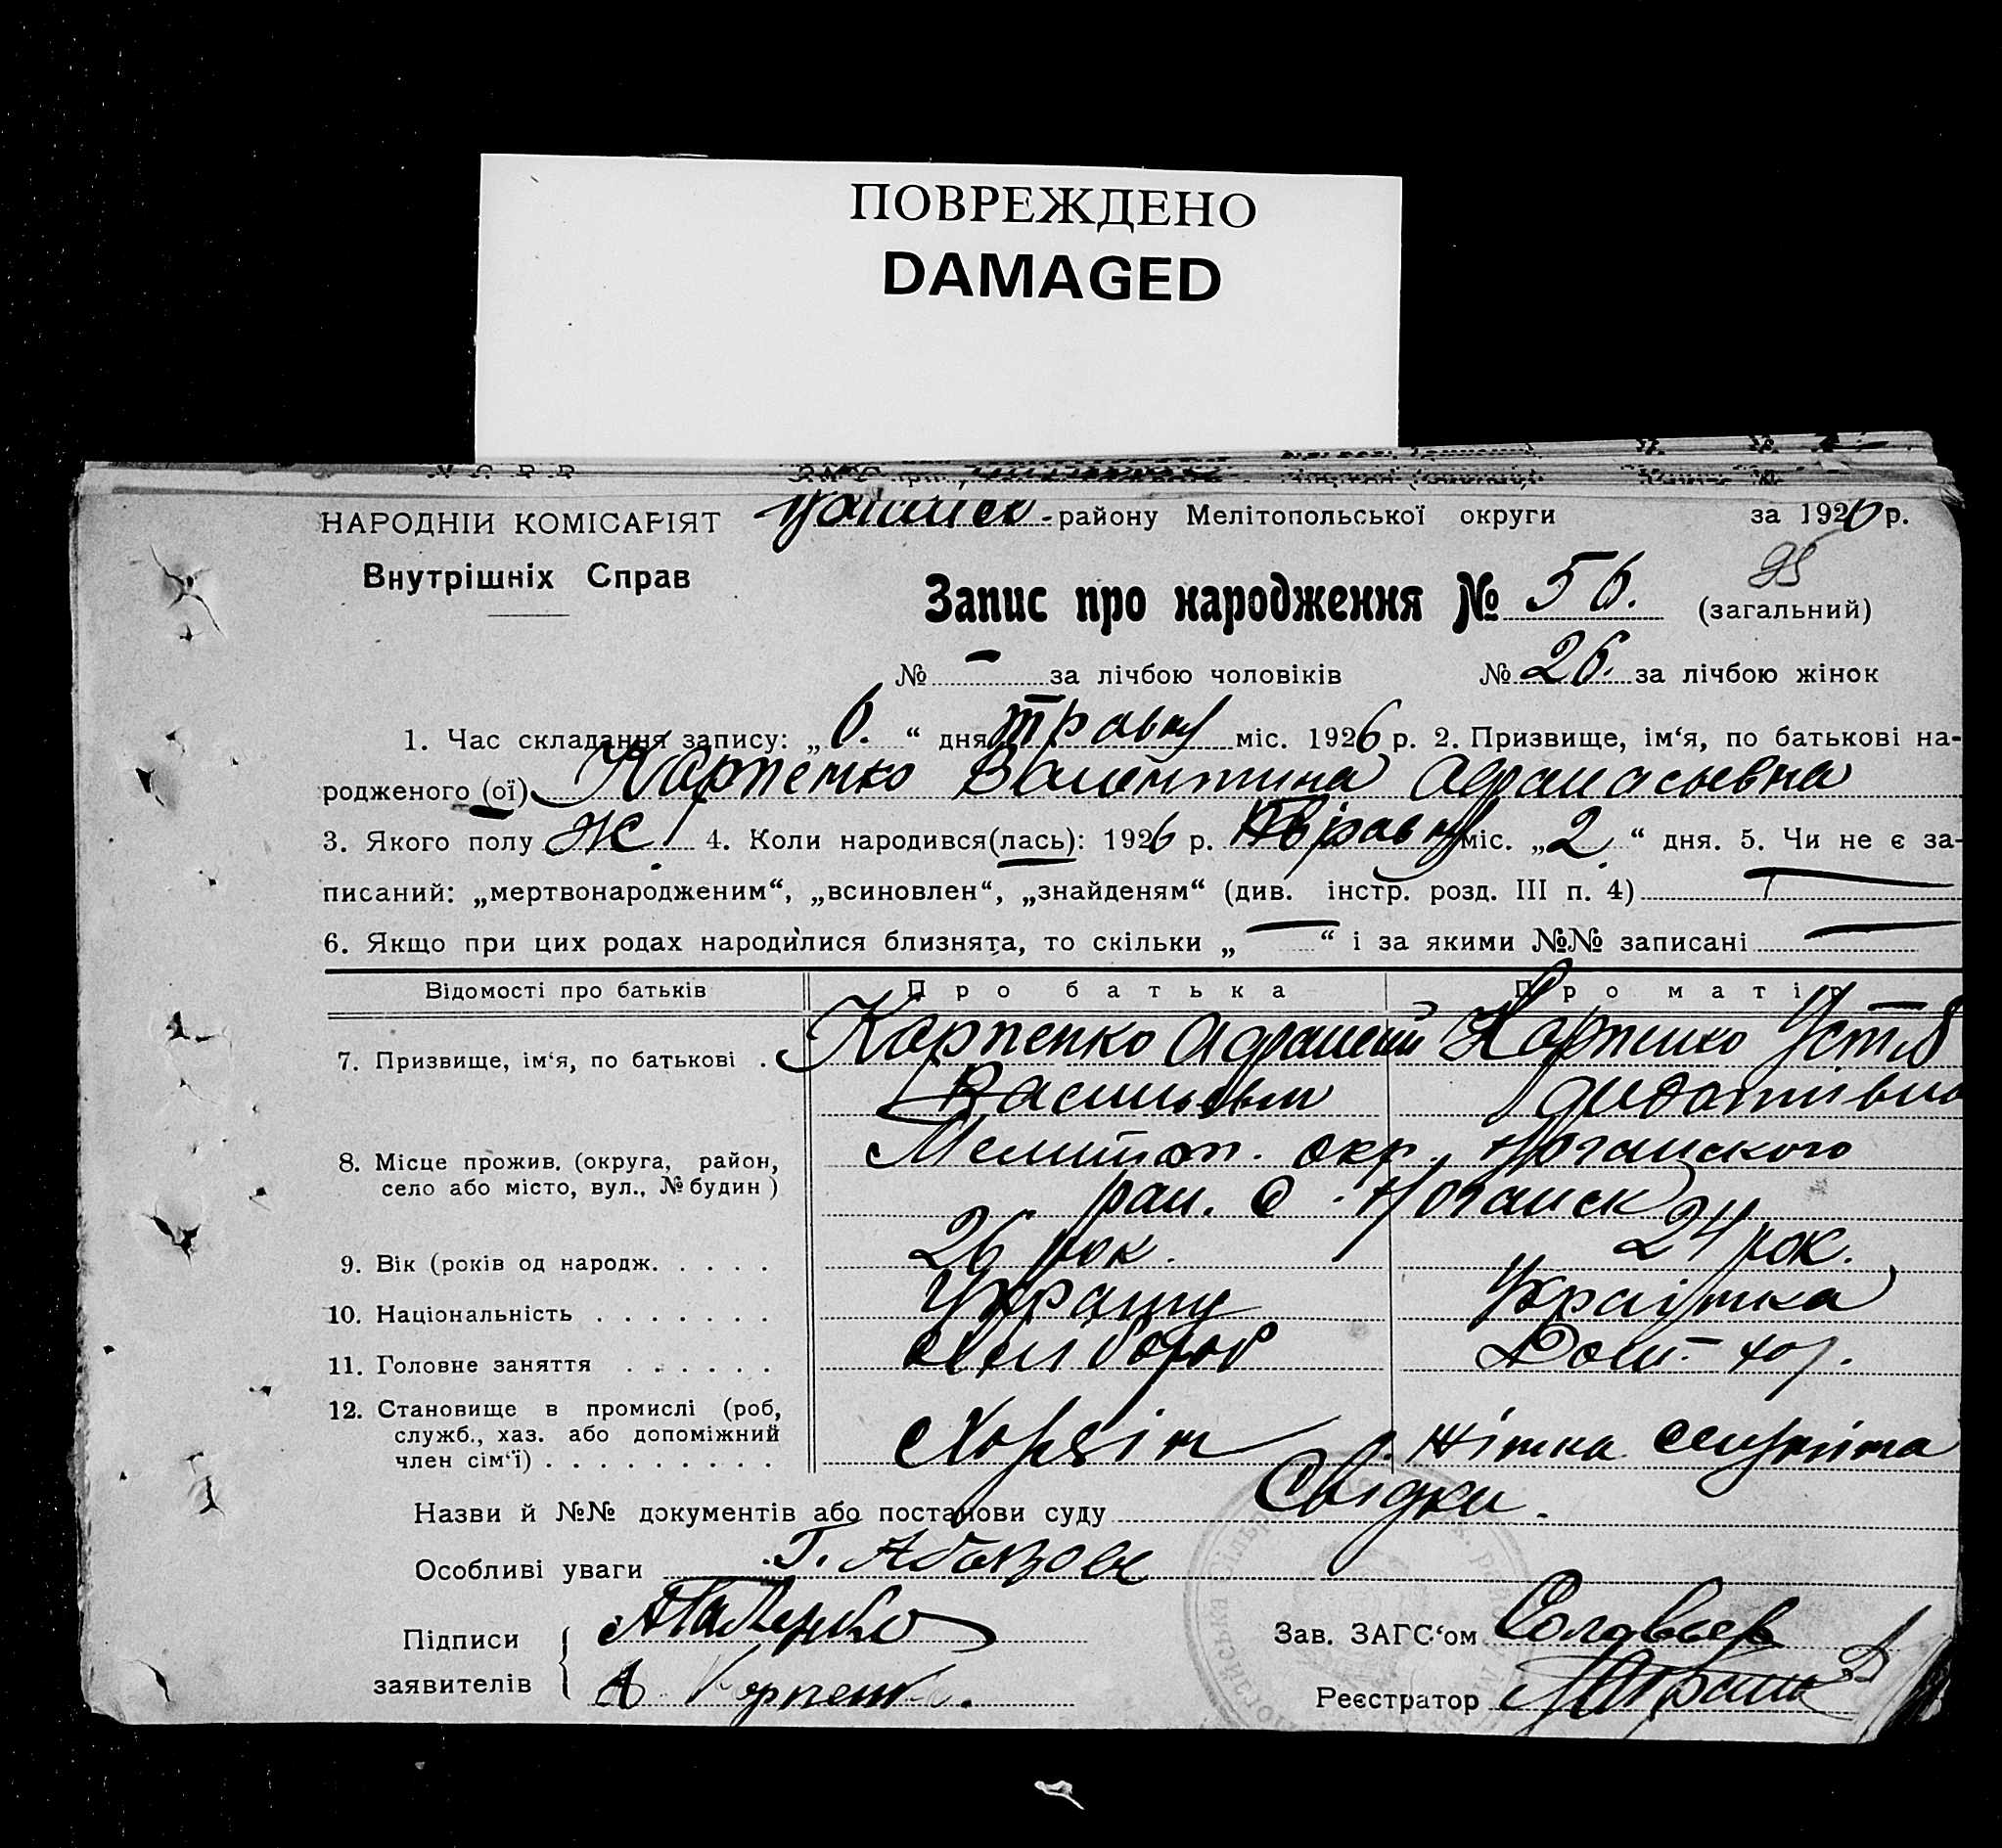 ПОВРЕЖДЕНО
DAMAGED
НАРОДНІЙ КОМІСАРІЯТ
Внутрішніх Справ
-району Мелітопольської округи за 1926 р.
95
Запис про народження № 56. (загальний)
№ – за лічбою чоловіків № 26. за лічбою жінок
1. Час складання запису: „6.“ дня травня міс. 1926 р. 2. Призвище, ім‘я, по батькові на-
родженого (ої) Карпенко Валентина Афанасьевна
3. Якого полу Ж. 4. Коли народився(лась): 1926 р. Травня міс. „2.“ дня. 5. Чи не є за-
писаний: „мертвонародженим“, „всиновлен“, „знайденям“ (див. інстр. розд. III п. 4) —
6. Якщо при цих родах народилися близнята, то скільки „—“ і за якими №№ записані —
Відомості про батьків Про батька Про матір
7. Призвище, ім‘я, по батькові . Карпенко Афанасий Карпенко
Васильевич
8. Місце прожив. (округа, район,
село або місто, вул., № будин)
Мелитоп. окр. Ногайского
рай. с. Ногайск
9. Вік (років од народж. . . . . 26 рок. 24 рок.
10. Національність . . . . . . . Украинец Українка
11. Головне заняття . . . . . . Хлибороб Дом.
12. Становище в промислі (роб,
служб., хаз. або допоміжний
член сім‘ї) . . . . . . . . . Хозяін
Назви й №№ документів або постанови суду Свідки.
Особливі уваги
Підписи
заявителів
А Карпенко.
Зав. ЗАГС‘ом Соловьев
Реєстратор